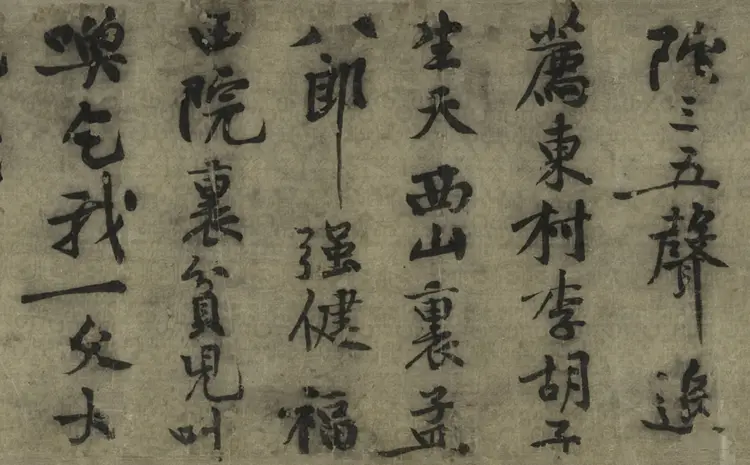 陀三五聲遙
薦東村李胡子
生天西山裏孟
八郎强健福
田院裏貧児叫
喚乞我一文大